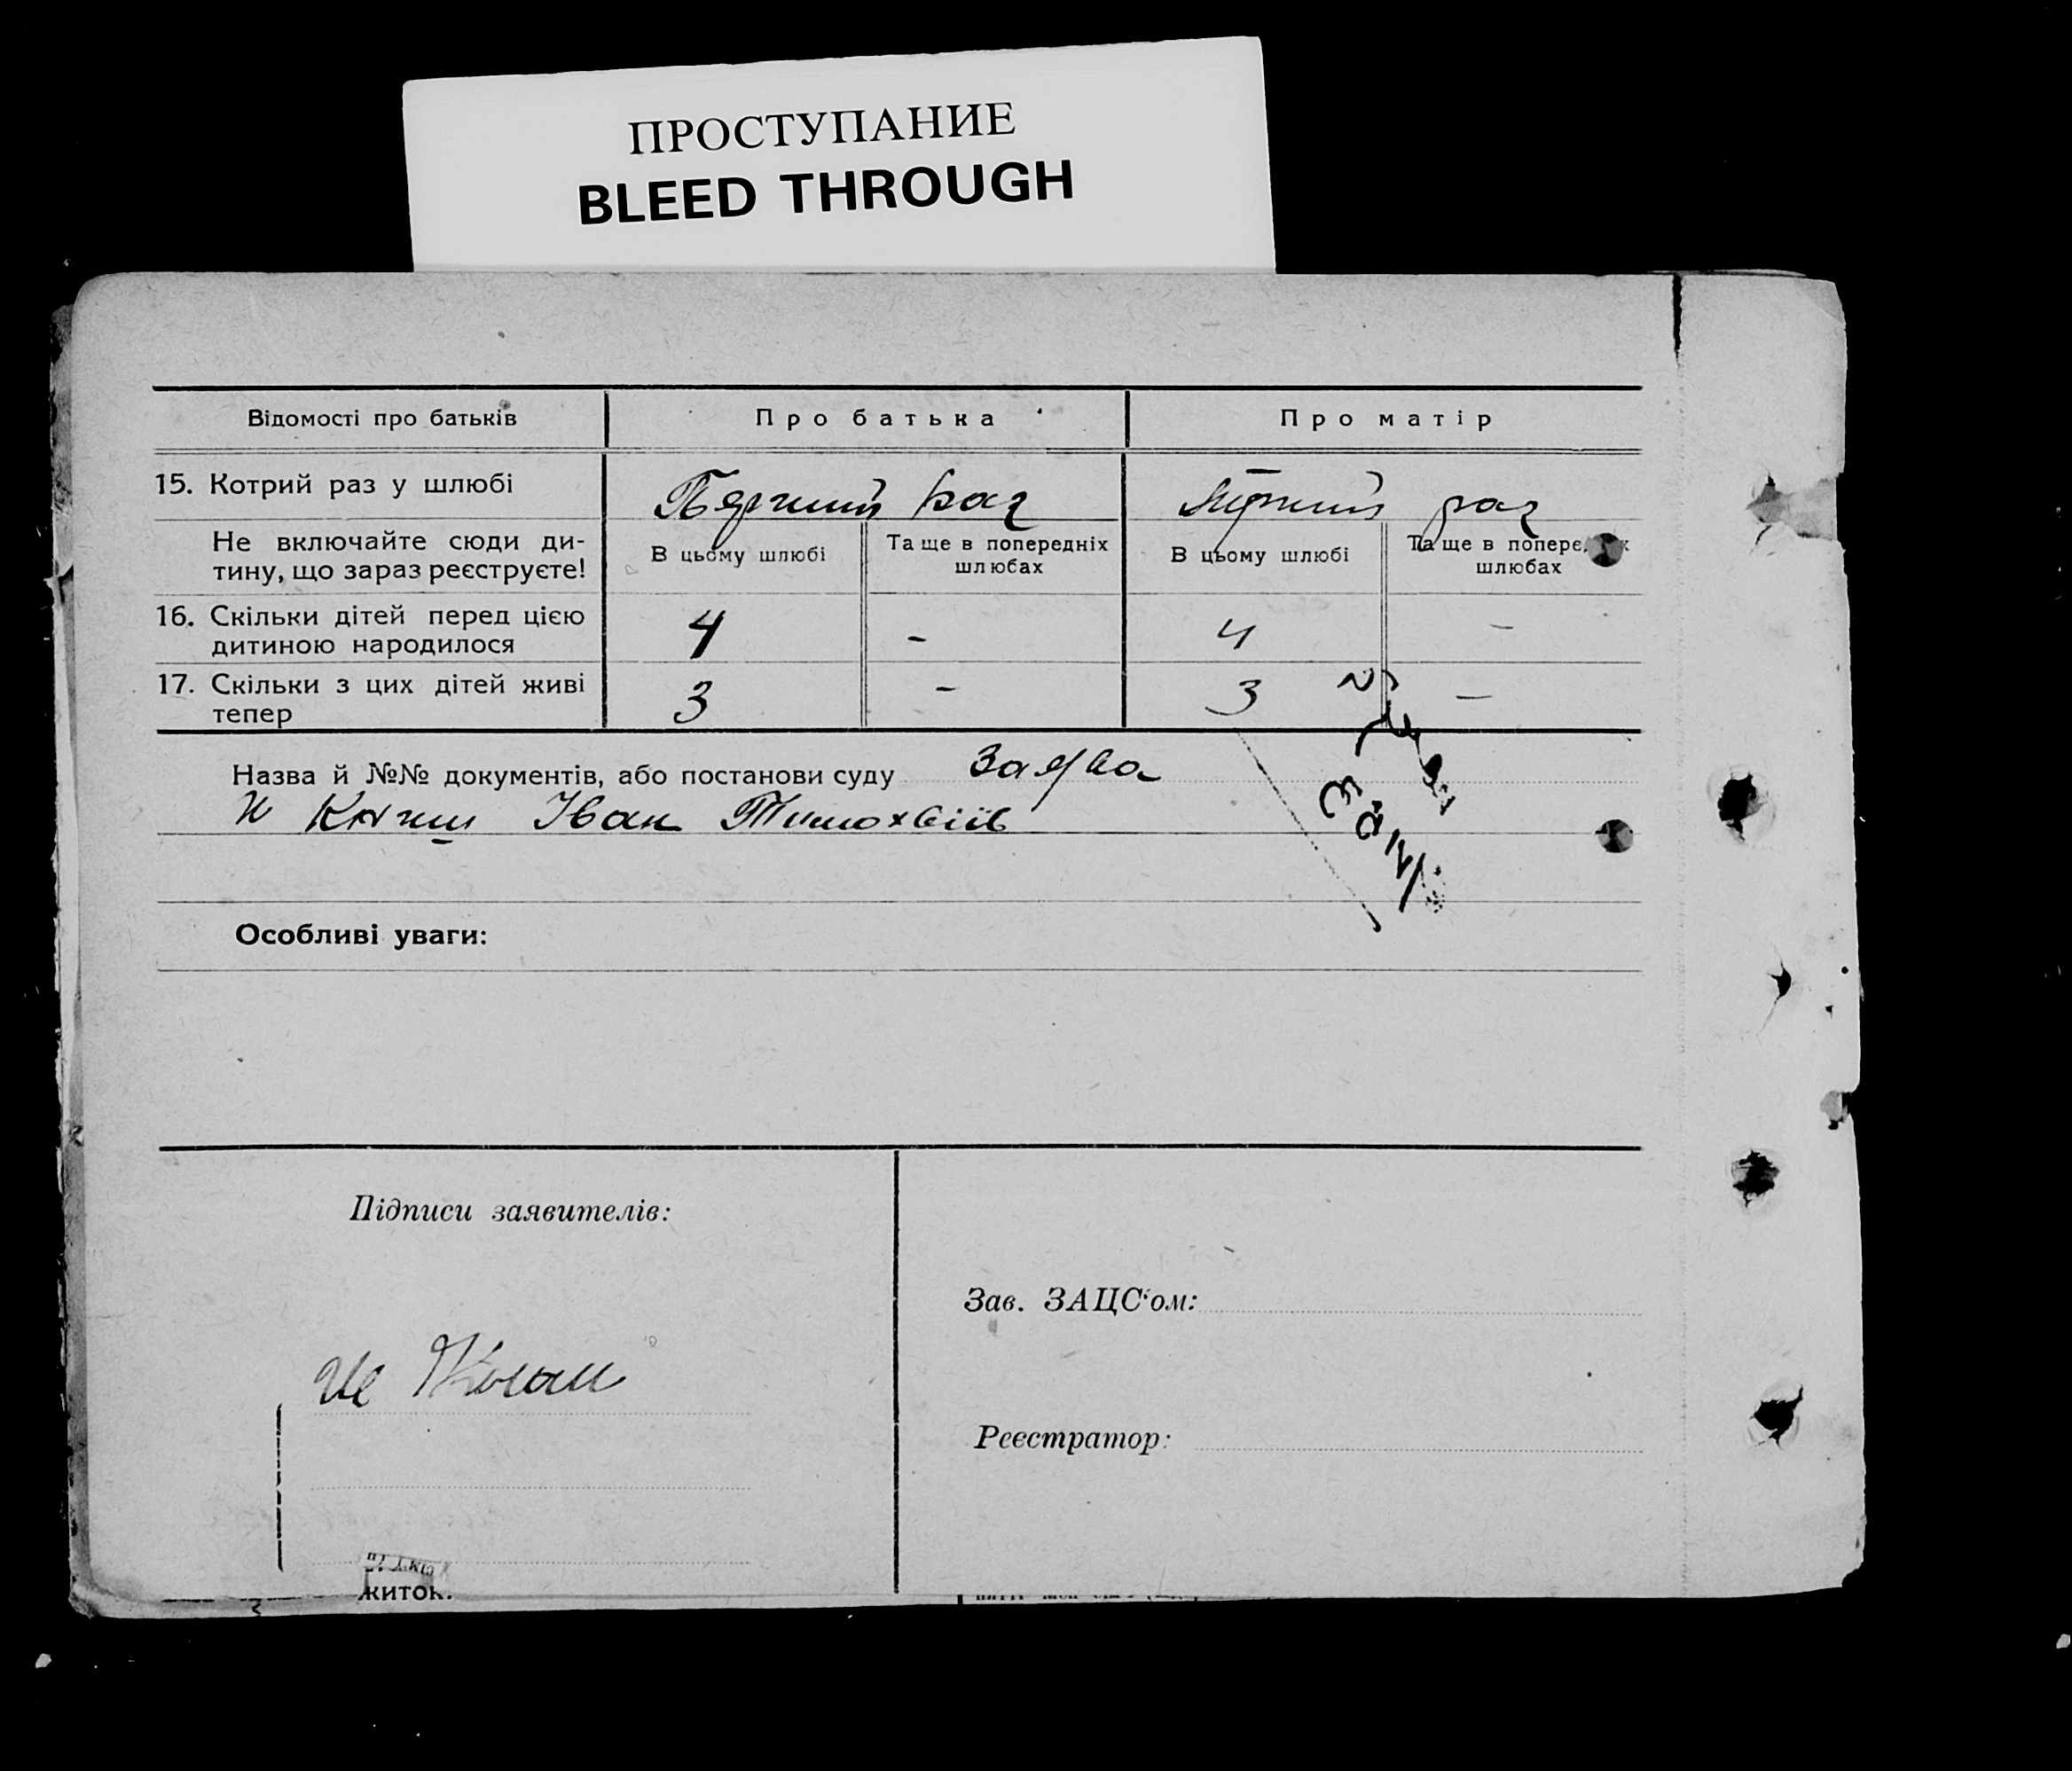 ПРОСТУПАНИЕ
BLEED THROUGH
Відомості про батьків
Про батька
Про матір
15. Котрий раз у шлюбі
Перший раз
раз
Не включайте сюди ди-
тину, що зараз реєструєте!
В цьому шлюбі
Та ще в попередніх
шлюбах
В цьому шлюбі
Та ще в попере
шлюбах
16. Скільки дітей перед цією
дитиною народилося
4
-
4
-
17. Скільки з цих дітей живі
тепер
3
-
3
-
Назва й №№ документів, або постанови суду Заява
Іван Тимохвіїв
Особливі уваги:
Підписи заявителів:
Зав. ЗАЦС'ом:
Реєстратор:
житок.